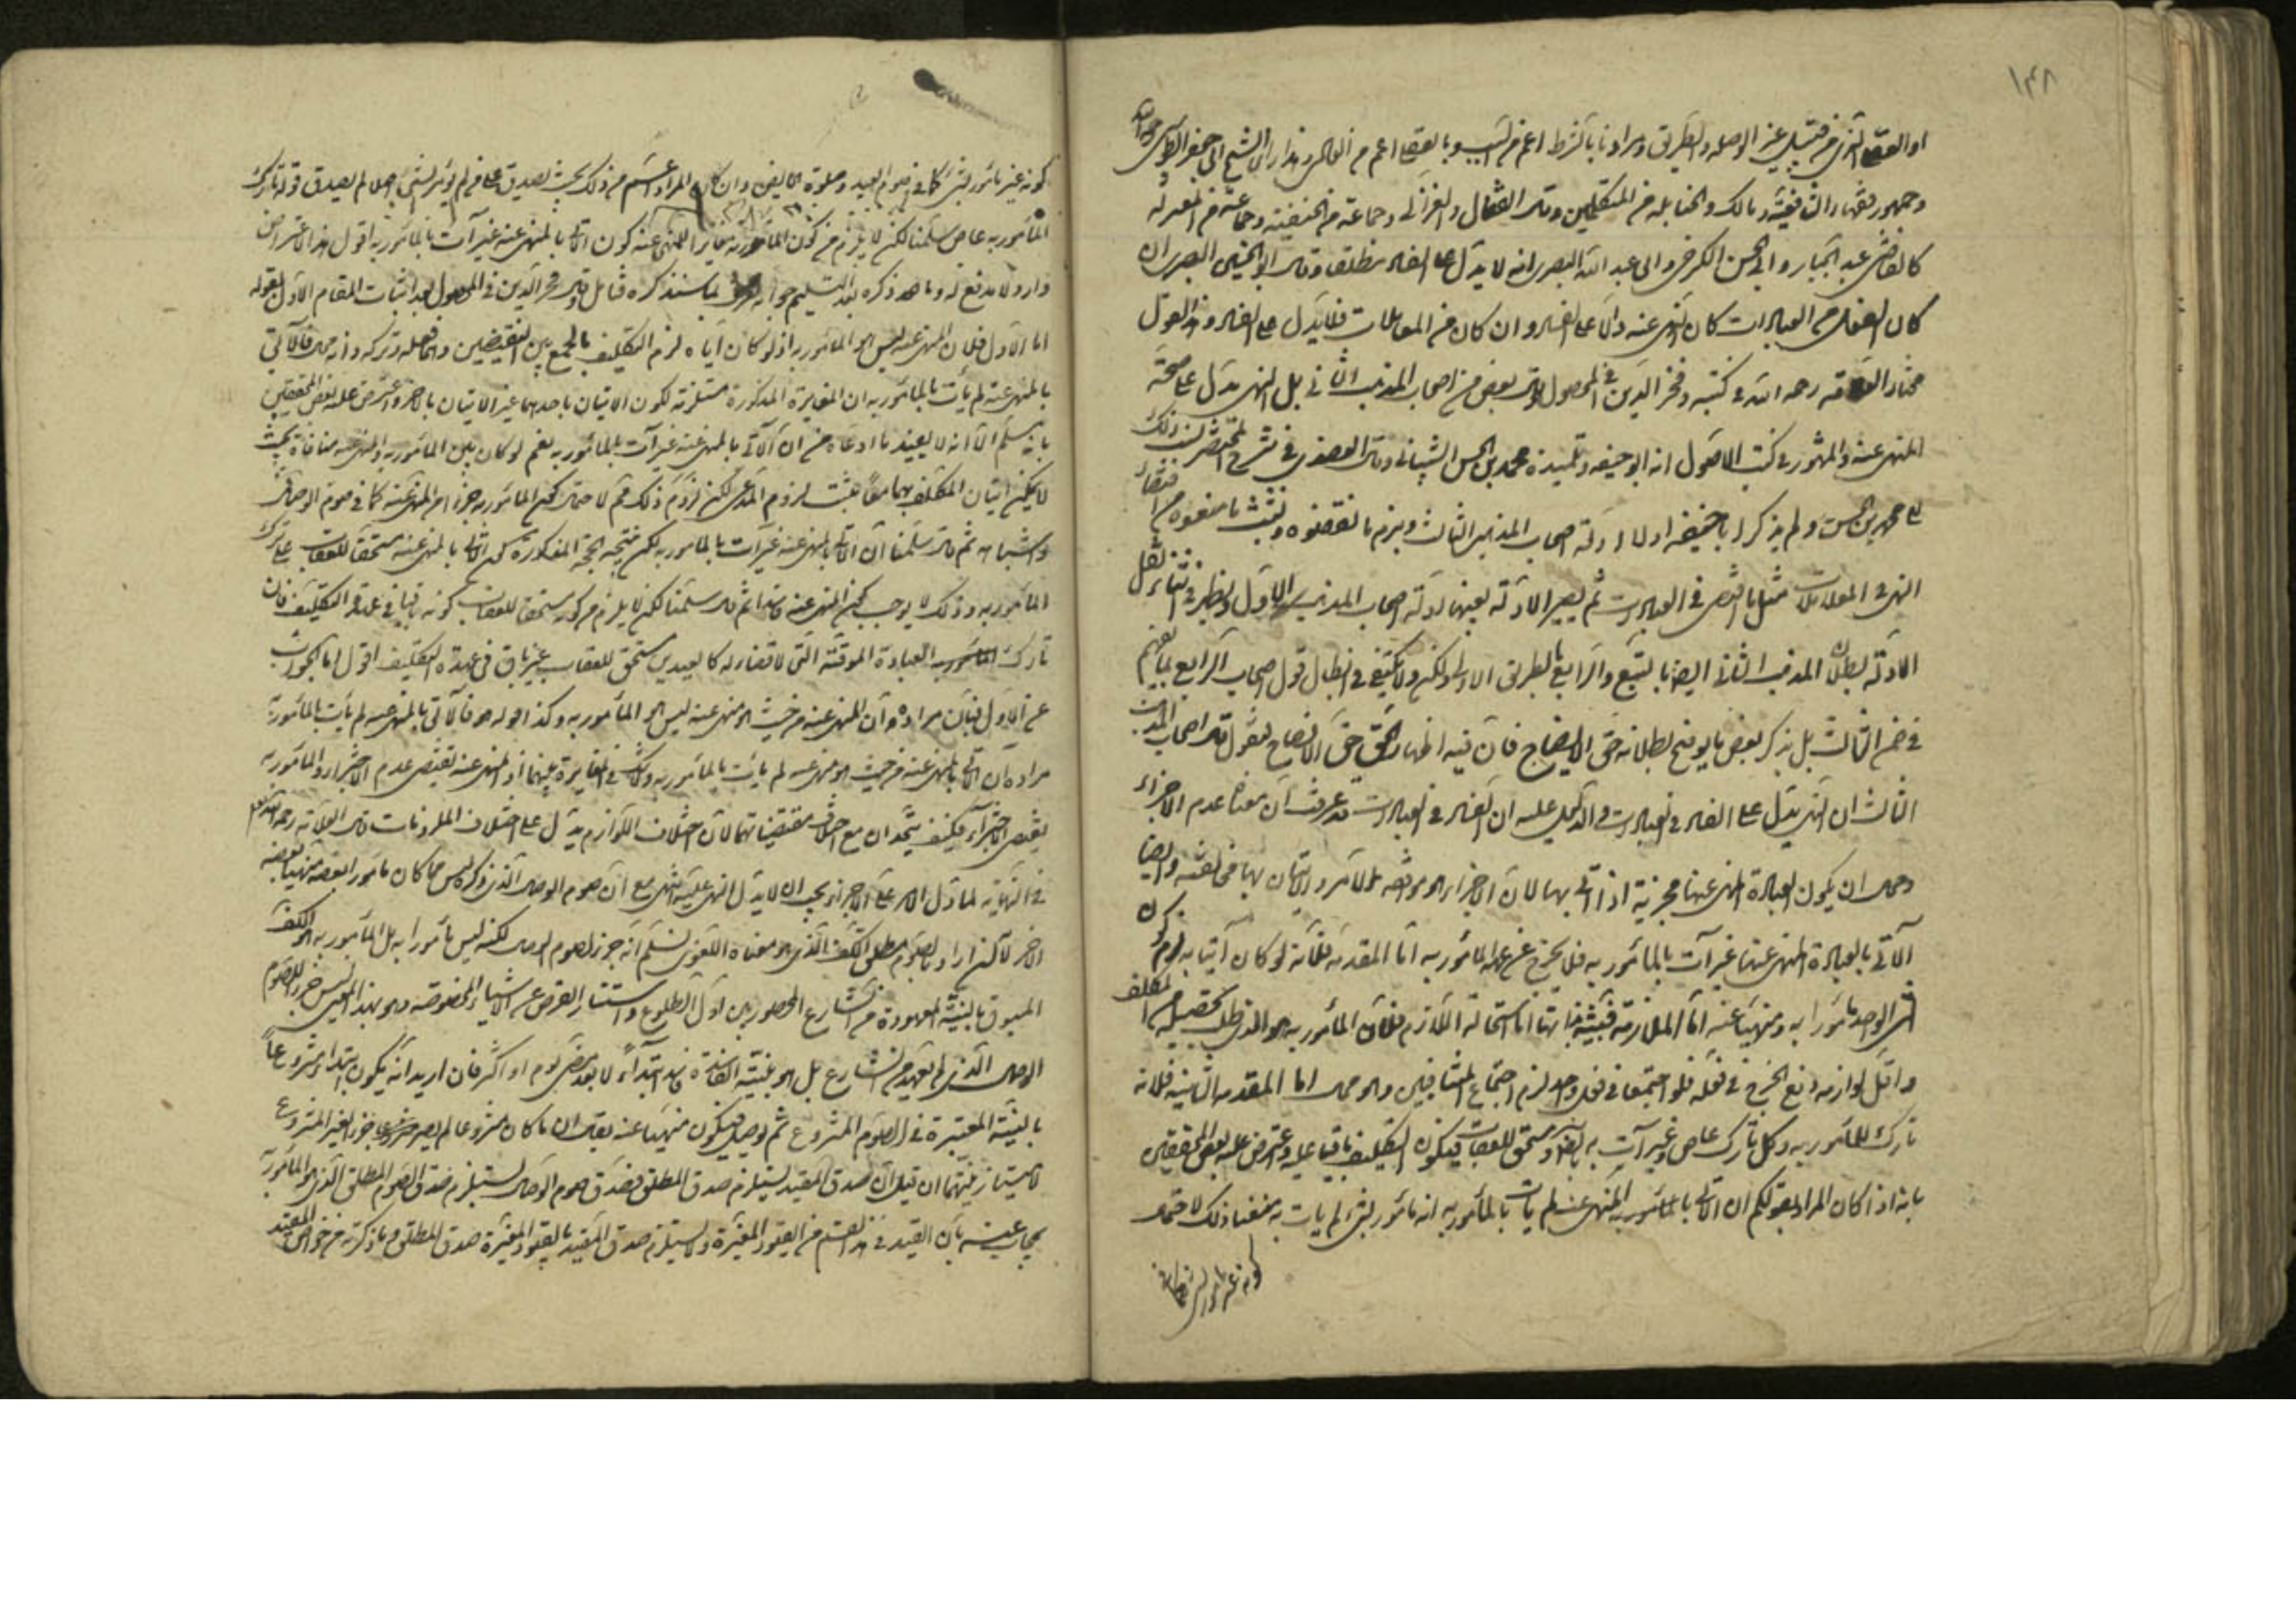 ١٤٨
او الفقها الذي من قبيل غير الوصله والطريق ومرادنا بالشرط اعم من السبب وبالفقها اعم من الحال وهذا راى الشيخ ابى جعفر الطوسى رحمه الله
وجمهور فقهاء الشافعية ومالك والحنابله من المتكلمين وقال القفال والغزالى وجماعة من الحنفية وجماعة من المعتزله
كالقاضى عبد الجبار وابى الحسن الكرخى وابى عبد الله البصرى انه لا يدل على الفساد مطلقا وقال ابو الحسين البصرى ان
كان الفعل من العبادات كان النهى عنه دالا على الفساد وان كان من المعاملات فلا يدل على الفساد وهذا القول
مختار العلامة رحمه الله فى كتبه وفخر الدين فى المحصول وقال بعض من اصحاب المذهب الثانى بل النهى يدل على صحة
المنهى عنه والمشهور فى كتب الاصول انه ابو حنيفه وتلميذه محمد بن الحسن الشيبانى وقال العضدى فى شرح المختصر نسب ذلك
الى محمد بن الحسن ولم يذكر ابا حنيفه اولا ادلة اصحاب المذهب الثالث ونبرم ما نقضوه ونثبت ما منعوه من اقتضاء
النهى فى المعاملات مثل ما اقتضى فى العبادات ثم يصير الادلة بعينها ادلة اصحاب المذهب الاول ويظهر فى اثناء نقل
الادلة بطلان المذهب الثانى ايضا بالتبع والرابع بالطريق الاولى ولكن ولا نكتفى فى ابطال قول اصحاب الرابع بما يفهم
فى ضمن الثالث بل نذكر بعض ما يوضح بطلانه حق الايضاح فان فيه اظهار الحق حق الافصاح فنقول قال اصحاب المذهب
الثالث ان النهى يدل على الفساد فى العبادات والدليل عليه ان الفساد فى العبادات قد عرفت ان معناه عدم الاجزاء
ومحال ان يكون العبادة المنهى عنها مجزية اذا اتى بها لان الاجزاء هو موافقة الامر والاتيان بها مخالفته وايضا
الآتى بالعبادة المنهى عنها غير آت بالمأمور به فلا يخرج عن عهدة المأمور به اما المقدمة فلانه لو كان آتيا به لزم كون
الشئ الواحد مأمورا به ومنهيا عنه اما الملازمة فبينة بذاتها اما استحالة اللازم فلان المأمور به هو الذى طلب تحصيله من المكلف
واقل لوازمه رفع الحرج فى فعله فلو اجتمعا فى فعل واحد لزم اجتماع المتنافيين وهو محال اما المقدمه الثانية فلانه
تارك للمأمور به وكل تارك عاص وغير آت به وكل عاص مستحق للعقاب فيكون التكليف باقيا عليه واعترض عليه بعض المحققين
بانه اذا كان المراد بقولكم ان الآتى بالمنهى عنه لم يات بالمأمور به انه مأمور بشئ لم يات به منعنا ذلك لاحتمال
كونه غير مأمور بشئ كما فى
كونه غير مأمور بشئ كما فى صوم العيد وصلوة الحائض وان كان المراد اعم من ذلك بحيث يصدق على من لم يؤمر بشئ اصلا لم يصدق قوله تارك
المأمور به عاص سلمنا لكن لا يلزم من كون المأمور به مغايرا للمنهى عنه كون الآتى بالمنهى عنه غير آت بالمأمور به اقول هذا الاعتراض
وارد ولا مدفع له وما قد ذكره بعد التسليم جوابه بما سنذكره فتأمل وقال فخر الدين فى المحصول بعد اثبات المقام الاول بقوله
اما الاول فلان المنهى عنه ليس هو المأمور به اذ لو كان اياه لزم التكليف بالجمع بين النقيضين وهما فعله وتركه وانه محال فالآتى
بالمنهى عنه لم يأت بالمأمور به ان المغايرة المذكورة مستلزمة لكون الاتيان باحدهما غير الاتيان بالآخر واعترض عليه بعض المحققين
بانه مسلم الا انه لا يفيد ما ادعاه من ان الآتى بالمنهى عنه غير آت بالمأمور به نعم لو كان بين المأمور به والمنهى عنه منافاة بحيث
لا يمكن اتيان المكلف بهما معا يثبت لزوم المدعى لكن لزوم ذلك ثم لاحتمال كون المأمور به جزءا من المنهى عنه كما فى صوم الوصال
واشباهه ثم قال سلمنا ان الآتى بالمنهى عنه غير آت بالمأمور به لكن نتيجه الحجة المذكورة كون الآتى بالمنهى عنه مستحقا للعقاب على ترك
المأمور به وذلك لا يوجب كون المنهى عنه فاسدا ثم قال سلمنا لكن لا يلزم من كونه مستحقا للعقاب كونه باقيا فى عهدة التكليف فان
تارك العبادة الموقتة التى لا قضاء له كالعيدين مستحق للعقاب غير باق فى عهدة التكليف اقول اما الجواب
عن الاول فبان مراده ان المنهى عنه من حيث هو منهى عنه ليس هو المأمور به وكذا قوله هو فالآتى بالمنهى عنه لم يات بالمأمور به
مراده ان الآتى بالمنهى عنه من حيث هو منهى عنه لم يات بالمأمور به ولا شك فى المغايرة بينهما اذ المنهى عنه تقتضى عدم الاجزاء والمأمور به
يقتضى الاجزاء فكيف يتحدان مع اختلاف مقتضياتهما لان اختلاف اللوازم يدل على اختلاف الملزومات قال العلامة رحمه الله تعالى
فى النهاية لما دل الامر على الاجزاء يجب ان لا يدل النهى عليه انتهى مع ان صوم الوصال الذى ذكره ليس مما كان مأمورا بعضه منهيا بعضه
الآخر لانه ان اراد بالصوم مطلق الكف الذى هو معناه اللغوى نسلم انه جزء لصوم الوصال لكنه ليس مأمورا به بل المأمور به هو الكف
المسبوق بالنية المعهودة من الشارع المحصور بين اول الطلوع واستتار القرص عن الاشياء المخصوصة وهو بهذا المعنى ليس جزءا للصوم
الوصال الذى لم يعهد من الشارع بل هو بنيته الفاسدة فاسد ابتداءً لا بعد مضى يوم او اكثر فان اريد انه يكون ابتداء مشروعاً
بالنية المعتبرة فى الصوم المشروع ثم يوصل فيكون منهيا عنه يقال ان ما كان مشروعا لم يصر جزءا لغير المشروع
لامتياز نيتهما ان قيل ان صدق المقيد يستلزم صدق المطلق فصدق صوم الوصال يستلزم صدق الصوم المطلق الذى هو المأمور به
يجاب عنه بان القيد فى هذا القسم من القيود المغيرة ولا يستلزم صدق المقيد بالقيود المغيرة صدق المطلق وما ذكرته من خواص المقيد